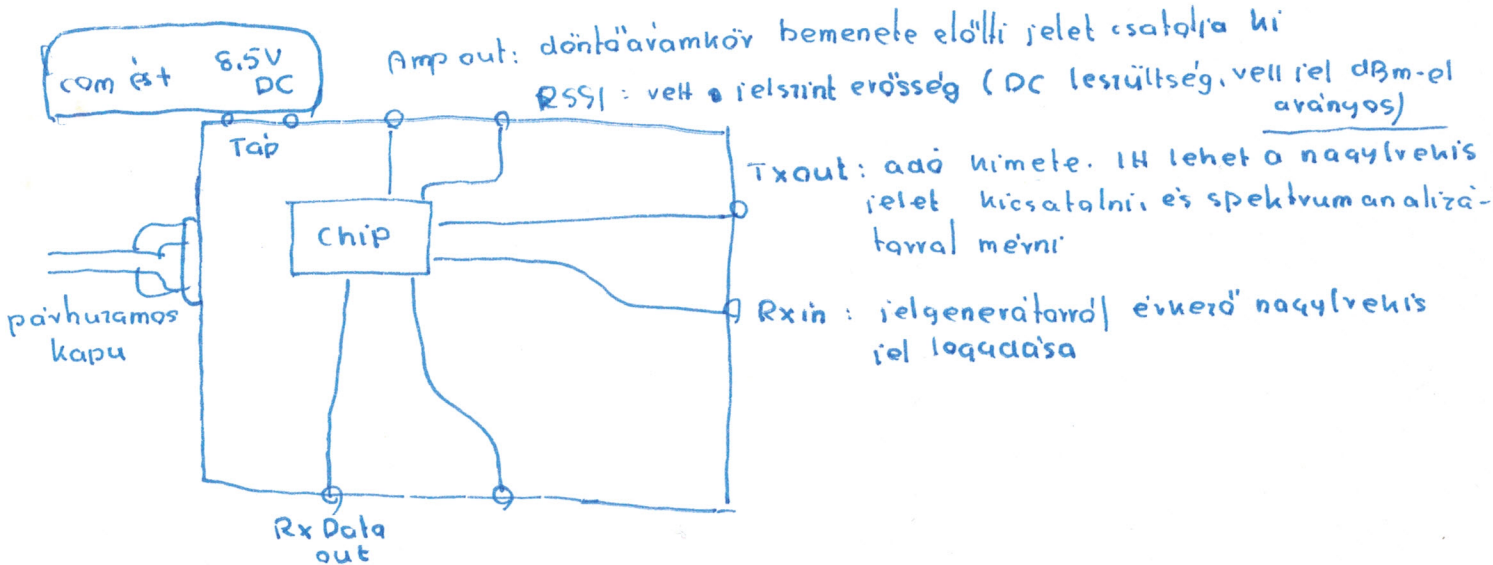 8.5V
com est DC
Amp out: döntőáramkör bemenete előtti jelet csatolja ki
RSSI: vett jelszint erősség (DC feszültség, vett jel dBm-el
arányos)
Táp
Txout: adó kimete. Itt lehet a nagyfrekis
jelet kicsatolni, és spektrum analizá-
torral mérni
Chip
párhuzamos
kapu
Rxin: jelgenerátorról érkező nagyfrekis
jel fogadása
Rx Data
out